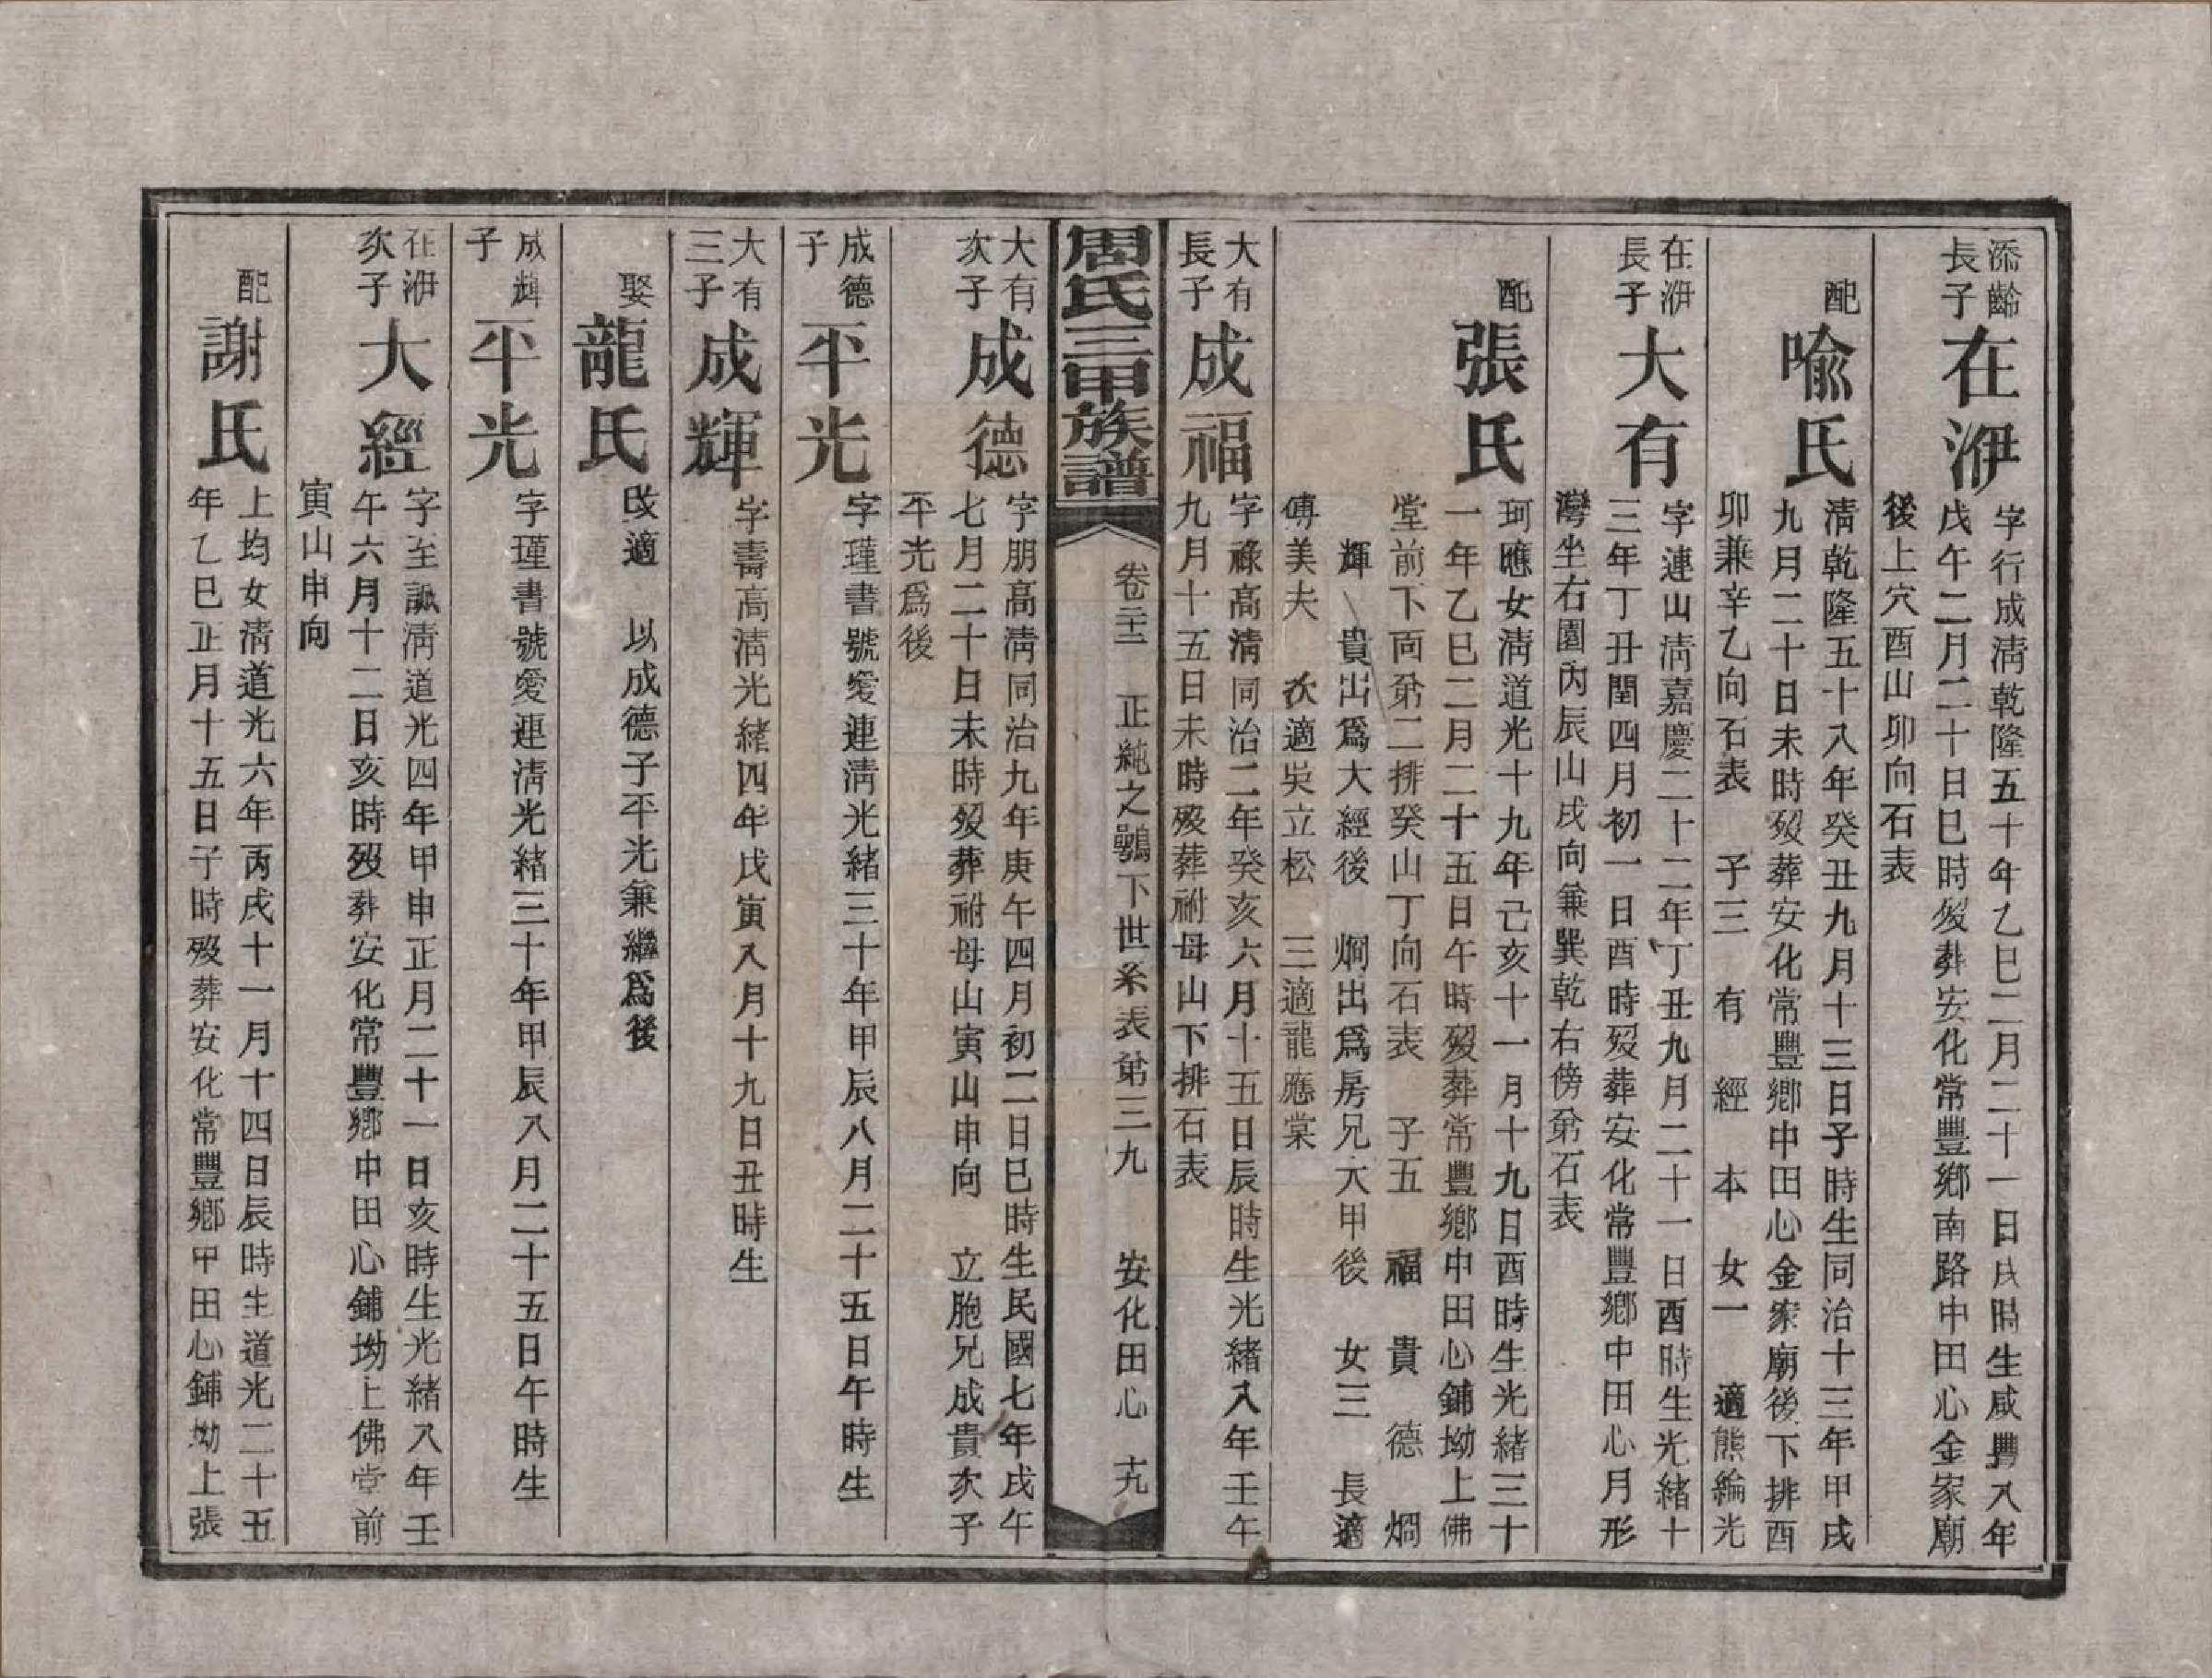 添齡
長子
在洢
字行成淸乾隆五十年乙巳二月二十一日戌時生咸豐八年
戊午二月二十日巳時歿葬安化常豐鄕南路中田心金家廟
後上穴酉山卯向石表
配
喩氏
淸乾隆五十八年癸丑九月十三日子時生同治十三年甲戌
九月二十日未時歿葬安化常豐鄕中田心金家廟後下排酉
卯兼辛乙向石表 子三 有 經 本 女一 適熊綸光
在洢
長子
大有
字連山淸嘉慶二十二年丁丑九月二十一日酉時生光緖十
三年丁丑閏四月初一日酉時歿葬安化常豐鄕中田心月形
灣坐右園內辰山戌向兼巽乾右傍第石表
配
張氏
珂應女淸道光十九年己亥十一月十九日酉時生光緖三十
一年乙巳二月二十五日午時歿葬常豐鄕中田心鋪坳上佛
堂前下面第二排癸山丁向石表 子五 福 貴 德 烱
輝 貴出爲大經後 烱出爲房兄大甲後 女三 長適
傅美夫 次適吳立松 三適龍應棠
大有
長子
成福
字祿高淸同治二年癸亥六月十五日辰時生光緖八年壬午
九月十五日未時歿葬祔母山下排石表
周氏三甲族譜
卷二十二 正純之鶚下世系表第三九 安化田心 十九
大有
次子
成德
字朋高淸同治九年庚午四月初二日巳時生民國七年戌午
七月二十日未時歿葬祔母山寅山申向 立胞兄成貴次子
平光爲後
成德
子
平光
字瑾書號愛連淸光緖三十年甲辰八月二十五日午時生
大有
三子
成輝
字壽高淸光緖四年戊寅八月十九日丑時生
娶
龍氏
改適 以成德子平光兼繼爲後
成輝
子
平光
字瑾書號愛連淸光緖三十年甲辰八月二十五日午時生
在洢
次子
大經
字至誠淸道光四年甲申正月二十一日亥時生光緖八年壬
午六月十二日亥時歿葬安化常豐鄕中田心鋪坳上佛堂前
寅山申向
配
謝氏
上均女淸道光六年丙戌十一月十四日辰時生道光二十五
年乙巳正月十五日子時歿葬安化常豐鄕中田心鋪坳上張